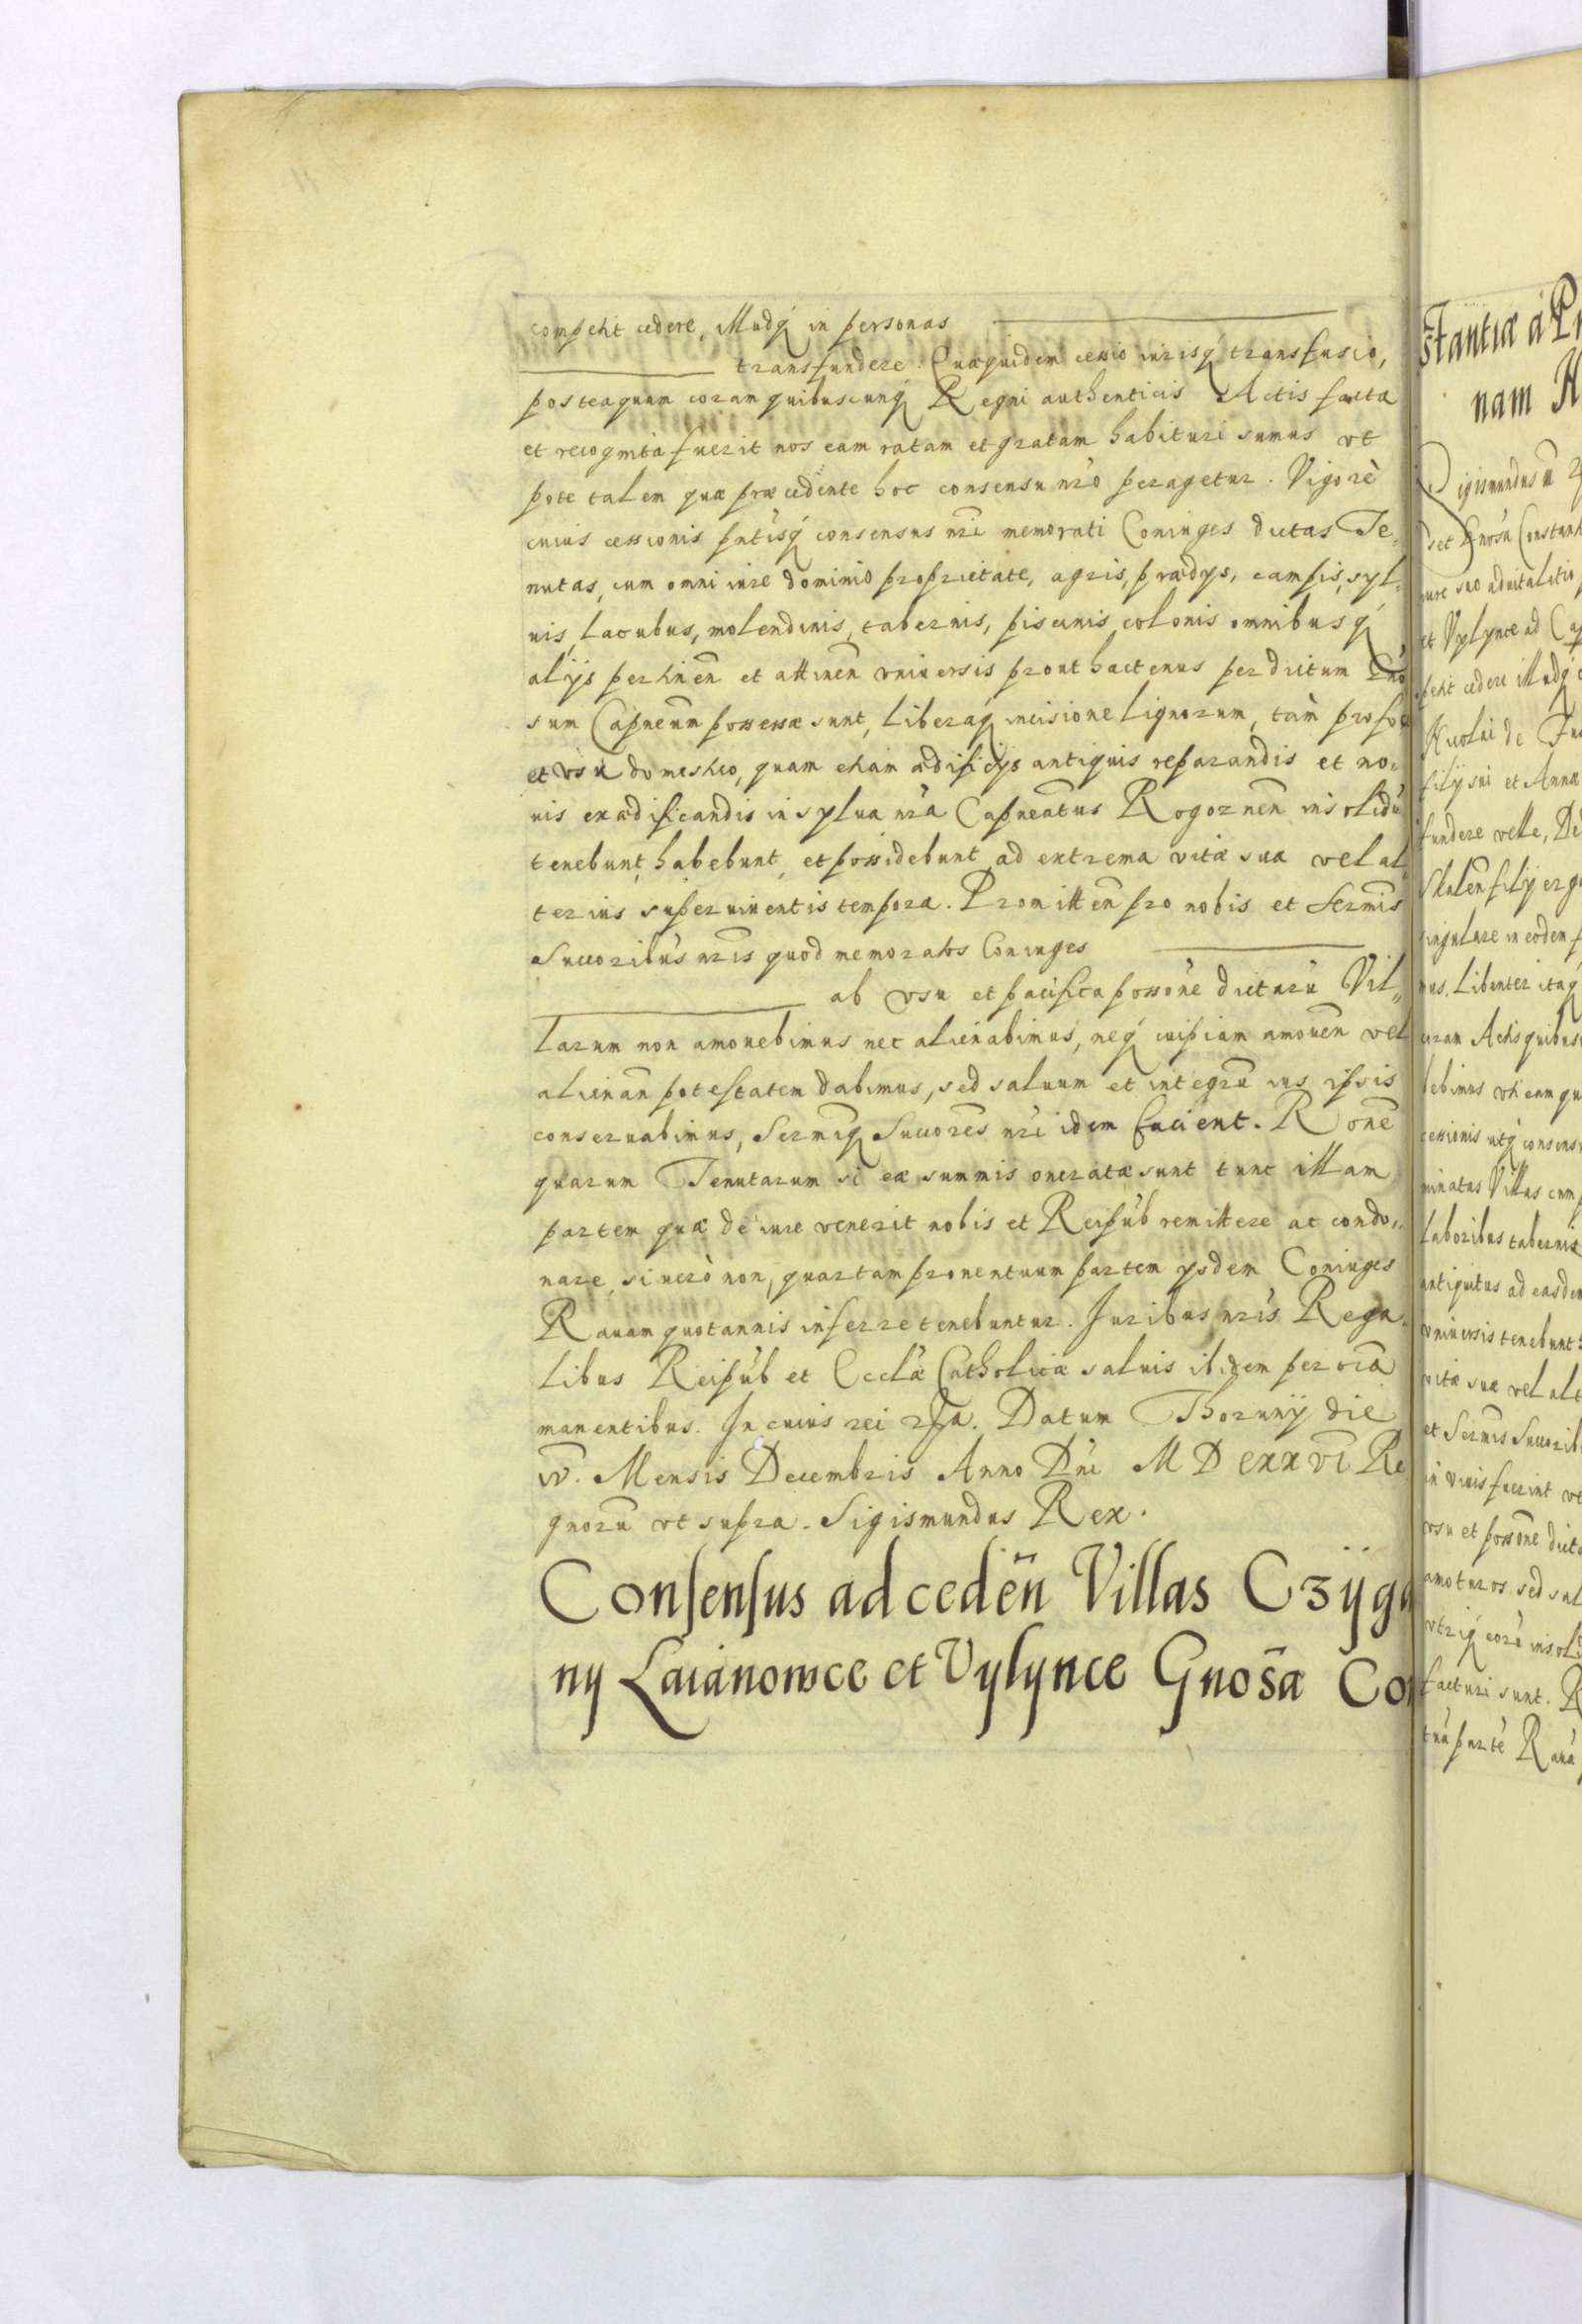 competit cedere, illudq́ in personas
transfundere. Quæquidem cessio iurisq́ transfusio,
posteaquam coram quibuscunq́ Regni authenticis Actis facta
et recognita fuerit nos eam ratam et gratam habituri sumus vt
pote talem quæ præcedente hoc consensu nr̃o peragetur. Vigorè
cuius cessionis pñtisq́ consensus nr̃i memorati Coniuges dictas Te„
nutas, cum omni iure dominio proprietate, agris, prædys, campis, syl„
uis, lacubus, molendinis, tabernis, piscinis colonis omnibusq́
alijs pertineñ et attineñ vniuersis prout hactenus per dictum Gño
sum Capneum possessæ sunt, liberaq́ incisione lignorum, tàm pro foco
et vsu domestico, quam etiam ædificijs antiquis reparandis et no„
uis exædificandis in sylua nr̃a Capneatus Rogoznen̄ insolidũ
tenebunt, habebunt, et possidebunt ad extrema vitæ suæ vel al„
terius superuiuentis tempora. Promitten̄ pro nobis et Serm̃is
Succoribus nr̃is quod memoratos Coniuges
ab vsu et pacifica possõne dictarũ Vil„
larum non amouebimus nec alienabimus, neq́ cuipiam amouen̄ vel
alienan̄ potestatem dabimus, sed saluum et integrũ ius ipsis
conseruabimus, Serm̃iq́ Succores nr̃i idem facient. Rõne
quarum Tenutarum si eæ summis oneratæ sunt tunc illam
partem quæ de iure venerit nobis et Reipub́ remittere ac condo„
nare, si uerò non, quartam prouentuum partem ysdem Coniuges
Rauam quotannis inferre tenebuntur. Juribus nr̃is Rega„
libus Reipub́ et Eccl̃æ Catholicæ saluis ibidem per oĩa
manentibus. In cuius rei Datum Thorunij die
Mensis Decembris Anno Dñi M D LXX VI Re
gnorũ vt supra. Sigismundus Rex.
Consensus ad ceden̄ Villas Czÿga
ny Laianowce et Vylynce Gnosæ Con
stantiæ à
nam
igismundus
set Gnosã
iure suo aduitalitio
et Vylynce ad
petit cedere illudq́
Nicolai de
filÿ sui et Annæ
fundere velle,
filÿ
singulare in eodem
mus. Libenter itaq́
coram Actis quibus
bebimus vti eam
cessionis consens
minatas Villas cum
laboribus tabernis
antiquitus ad easdem
vniuersis tenebunt
vitæ suæ vel alt
et Serm̃is Succorib
in viuis fuerint vt
vsu et possõne dict
amoturos sed sal
vtriq́ eorũ insoli
facturi sunt. R
Raua